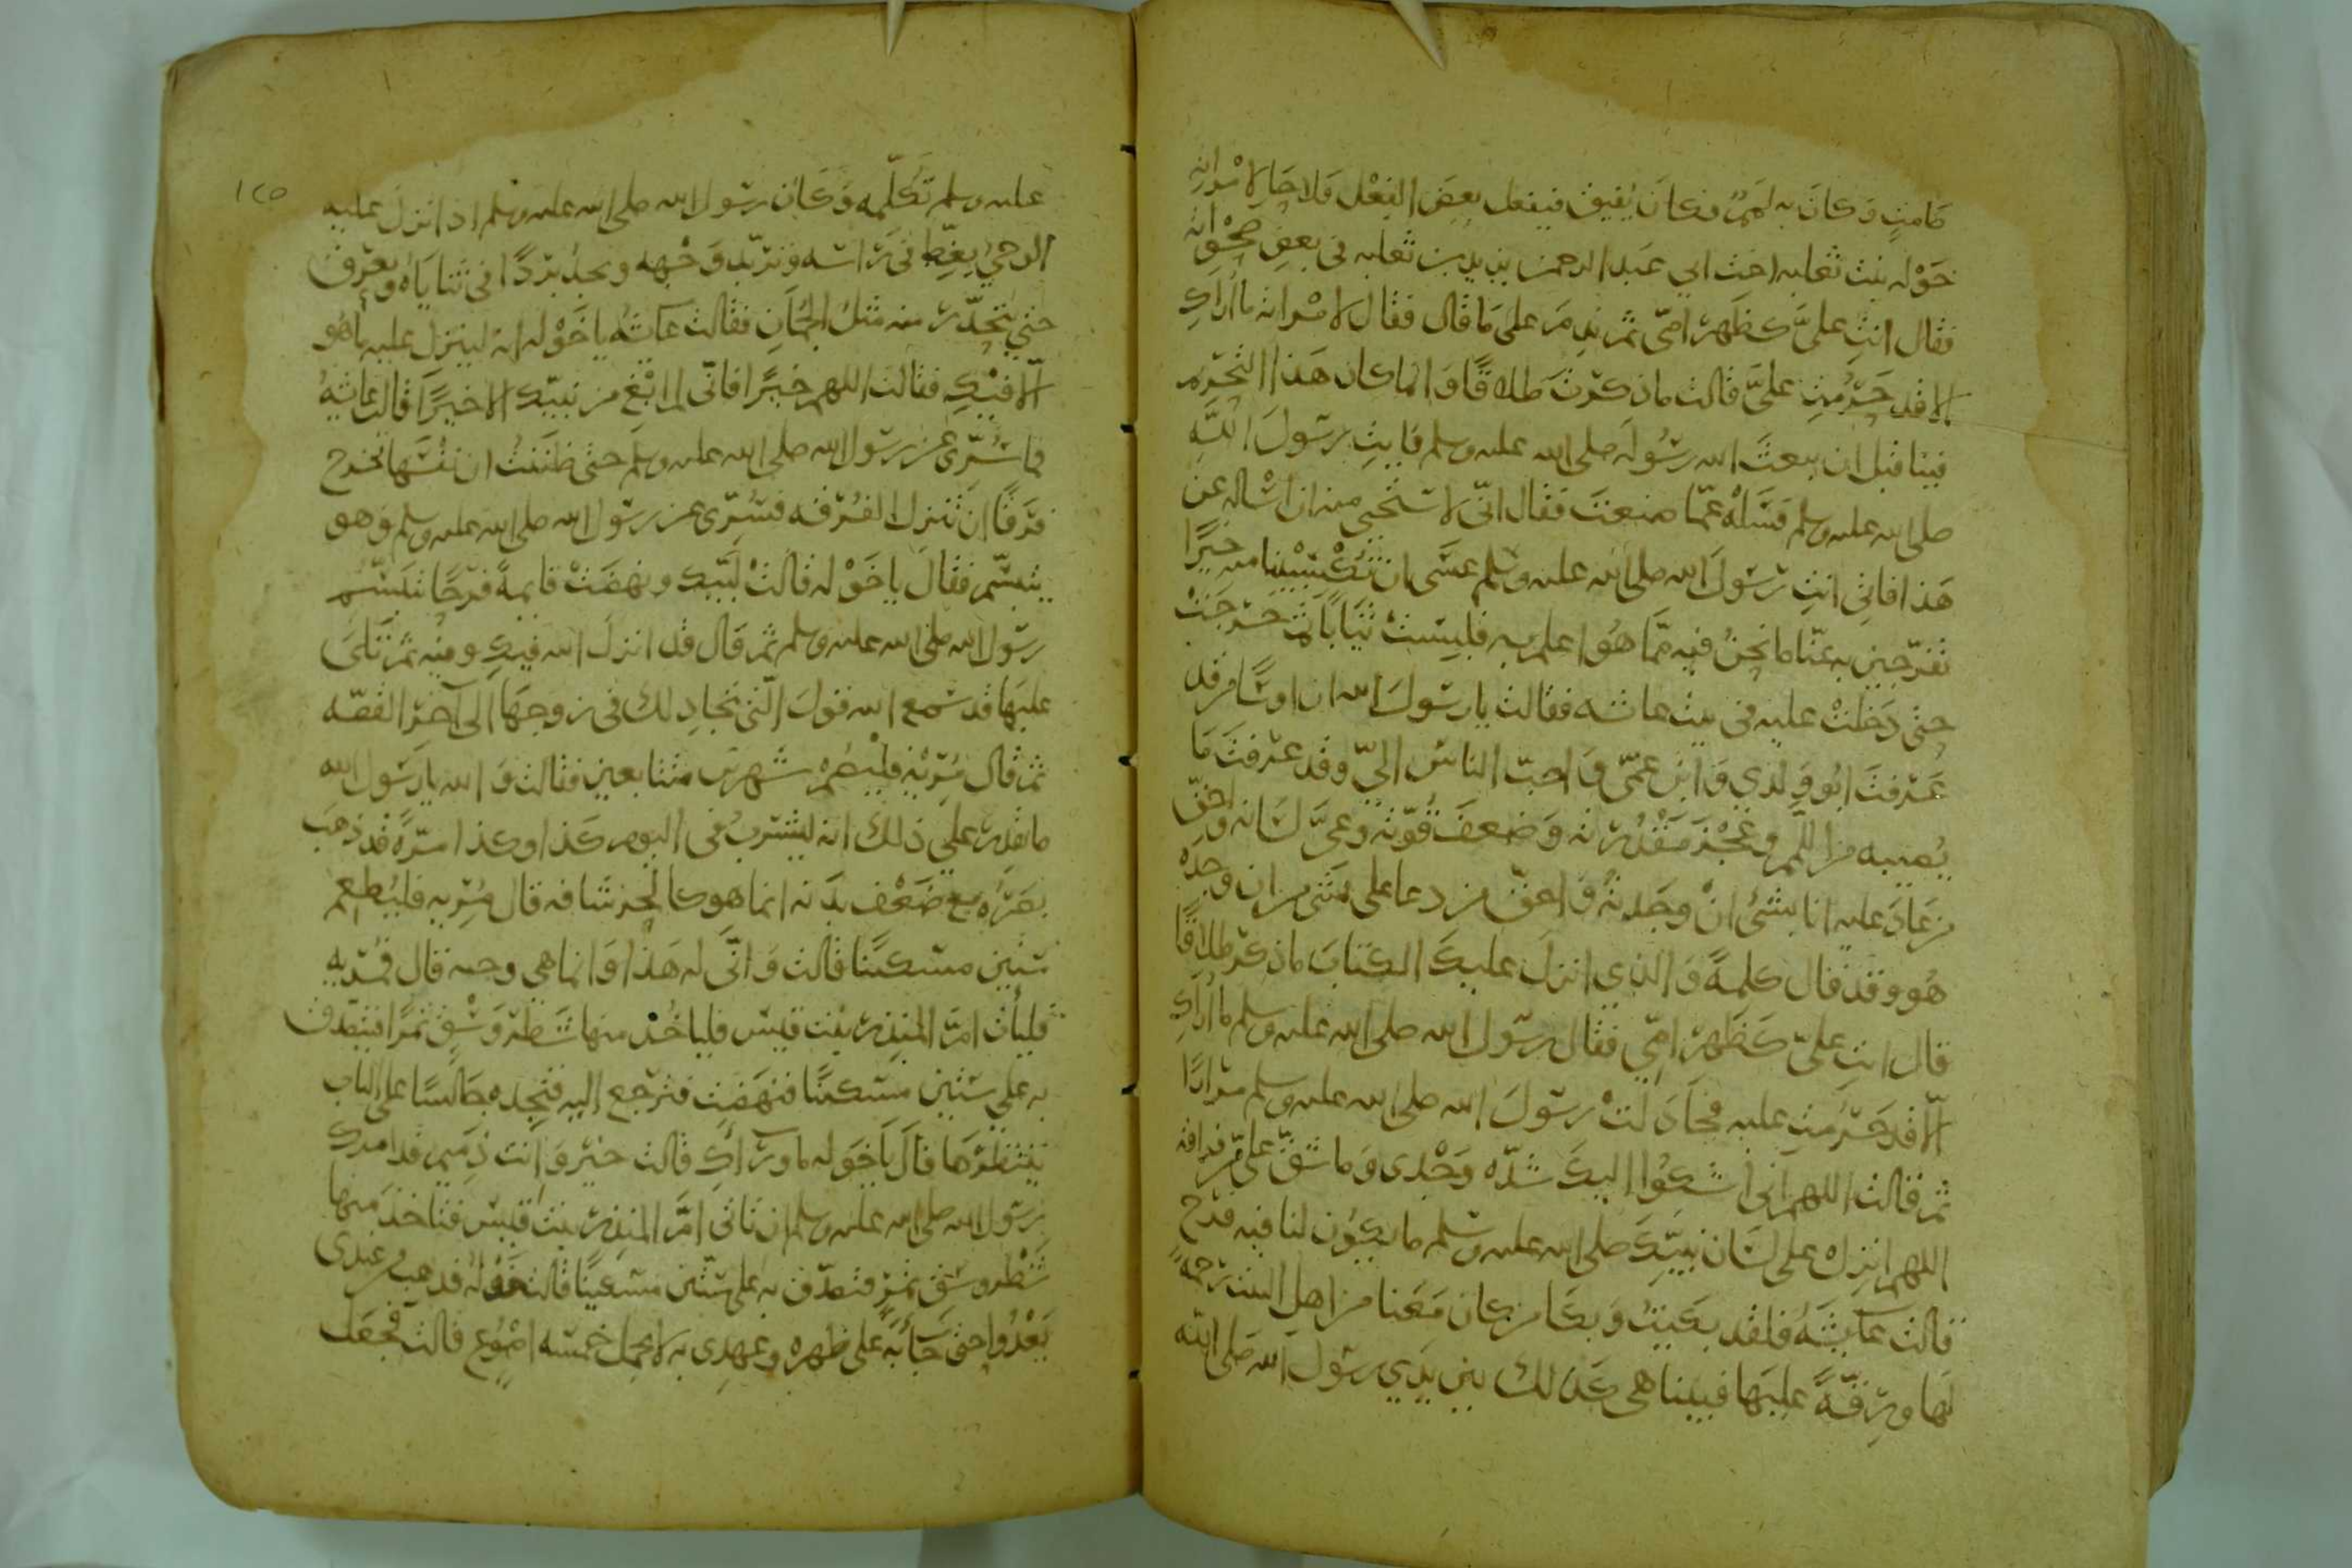 صامت وكان به لمم وكان يفيق فيفعل بعض الفعل فلاحا لامراته
خوله بنت ثعلبه اخت ابي عبد الرحمن يزيد بن ثعلبه في بعض صحواته
فقال انتِ عليَّ كظهر امّي ثم ندم على ما قال فقال لامراته ما اراكِ
الا قد حَرُمتِ عليَّ قالت ما ذكرتَ طلاقًا وانما كان هذا التحريم
فينا قبل ان يبعث الله رسوله صلى الله عليه وسلم فايتِ رسولَ اللّه
صلى الله عليه وسلم فسَلْه عمّا صنعتَ فقال انّي لاستحيي منه ان اساله عن
هذا فاتي انتِ رسولَ الله صلى الله عليه وسلم عسى ان تكسبينا منه خيرًا
تفرّجين به عنّا ما نحنُ فيه مما هُو اعلم به فلبست ثيابًا ثم خرجَتْ
حتى دخلتْ عليه في بيت عائشه فقالت يا رسولَ الله ان اوسًا من قد
عرفتَ ابُو وِلدي وابن عمّي واحبّ الناس اليّ وقد عرفتَ مَا
يُصيبه من اللمم وعجْز مَقْدُرته وضعفَ قُوّته وعيَّ لسانه واحقّ
من عَادَ عليه انا بشئ انْ وجدتُه واحقّ من دعا على شئ من ان وجده
هُو وقد قال كلمةً والذي انزل عليكَ الكتابَ ما ذكر طلاقًا
قال انتِ عليّ كظهر امّي فقال رسول الله صلى الله عليه وسلم ما اراكِ
الّا قد حَرُمتِ عليه فجادلتْ رسولَ الله صلى الله عليه وسلم مرارًا
ثم قالت اللهم اني اشكُوا اليكَ شدّه وَجْدي وما شقّ عليّ من فراقه
اللهم انزل على لسان نبيّكَ صلى الله عليه وسلم ما يكوُن لنا فيه فرج
قالت عائشهُ فلقد بكيتُ وبكا من كان مَعَنا من اهل البيت رحمةً
لها ورقّةً عليها فبينا هي كذلك بين يدي رسول الله صلى اللّه
١٢٥
عليه وسلم تكلّمه وكان رسول الله صلى الله عليه وسلم اذا نزل عليه
الوحيُ يغِطّ في راسه وتربّد وجهه ويجدُ بردًا في ثناياه ويعرق
حتي يتحدّر منه مثلُ الجُمان فقالت عائشه يا خَوْله انه لينزل عليه ما هُو
الّا فيكِ فقالت اللهم خيرًا فانّي لم ابْغ من نبيّك الا خيرًا قالت عائشهُ
فما سُرّي عن رسول الله صلى الله عليه وسلم حتى ظننتُ ان نفسَها تخرج
فرَقًا ان تنزل الفُرقه فسُرّى عن رسول الله صلى الله عليه وسلم وهو
يتبسّم فقال يا خَوْله قالتْ لبّيك ونهضَتْ قايمةً فرحًا بتبسّم
رسول الله صلى الله عليه وسلم ثم قال قد انزل الله فيكِ وفيه ثم تَلَى
عليها قد سَمع الله قول الّتي تجادلك في زوجها الى آخر القصّه
ثم قال مُرْيه فليَصُمْ شهرين متتابعين فقالت والله يا رسول الله
ما يقدر على ذلك انه ليشربُ في اليوم كذا وكذا مرّةً قد ذهب
بصَرُه مع ضَعْف بدَنه انما هو كالخرشافه قال مُريه فليُطعِم
ستين مسكينًا قالت وانّى له هذا وانما هي وجبه قال فمُريه
فليأتِ امّ المنذر بنت قيس فلياخُذ منها شَطْر وَسْقٍ تمرًا فيتصدّق
به على ستين مسكينًا فنهضَت فترجع اليه فتجِده جَالسًا على الباب
ينتظرُها فقال يا خوله ما وراءكِ قالت خيْر وانت ذميم قد امرك
رسول الله صلى الله عليه وسلم ان تاتي امّ المنذر بنت قيس فتاخذ منها
شطْر وسق تمرٍ فتصدّق به على ستّين مسكينًا قالت خَوله فذهب من عندي
يَعْدُوا حتى جآء به على ظهره وعهدي به لا يحمل خمسه اصْوُع قالت فجعل